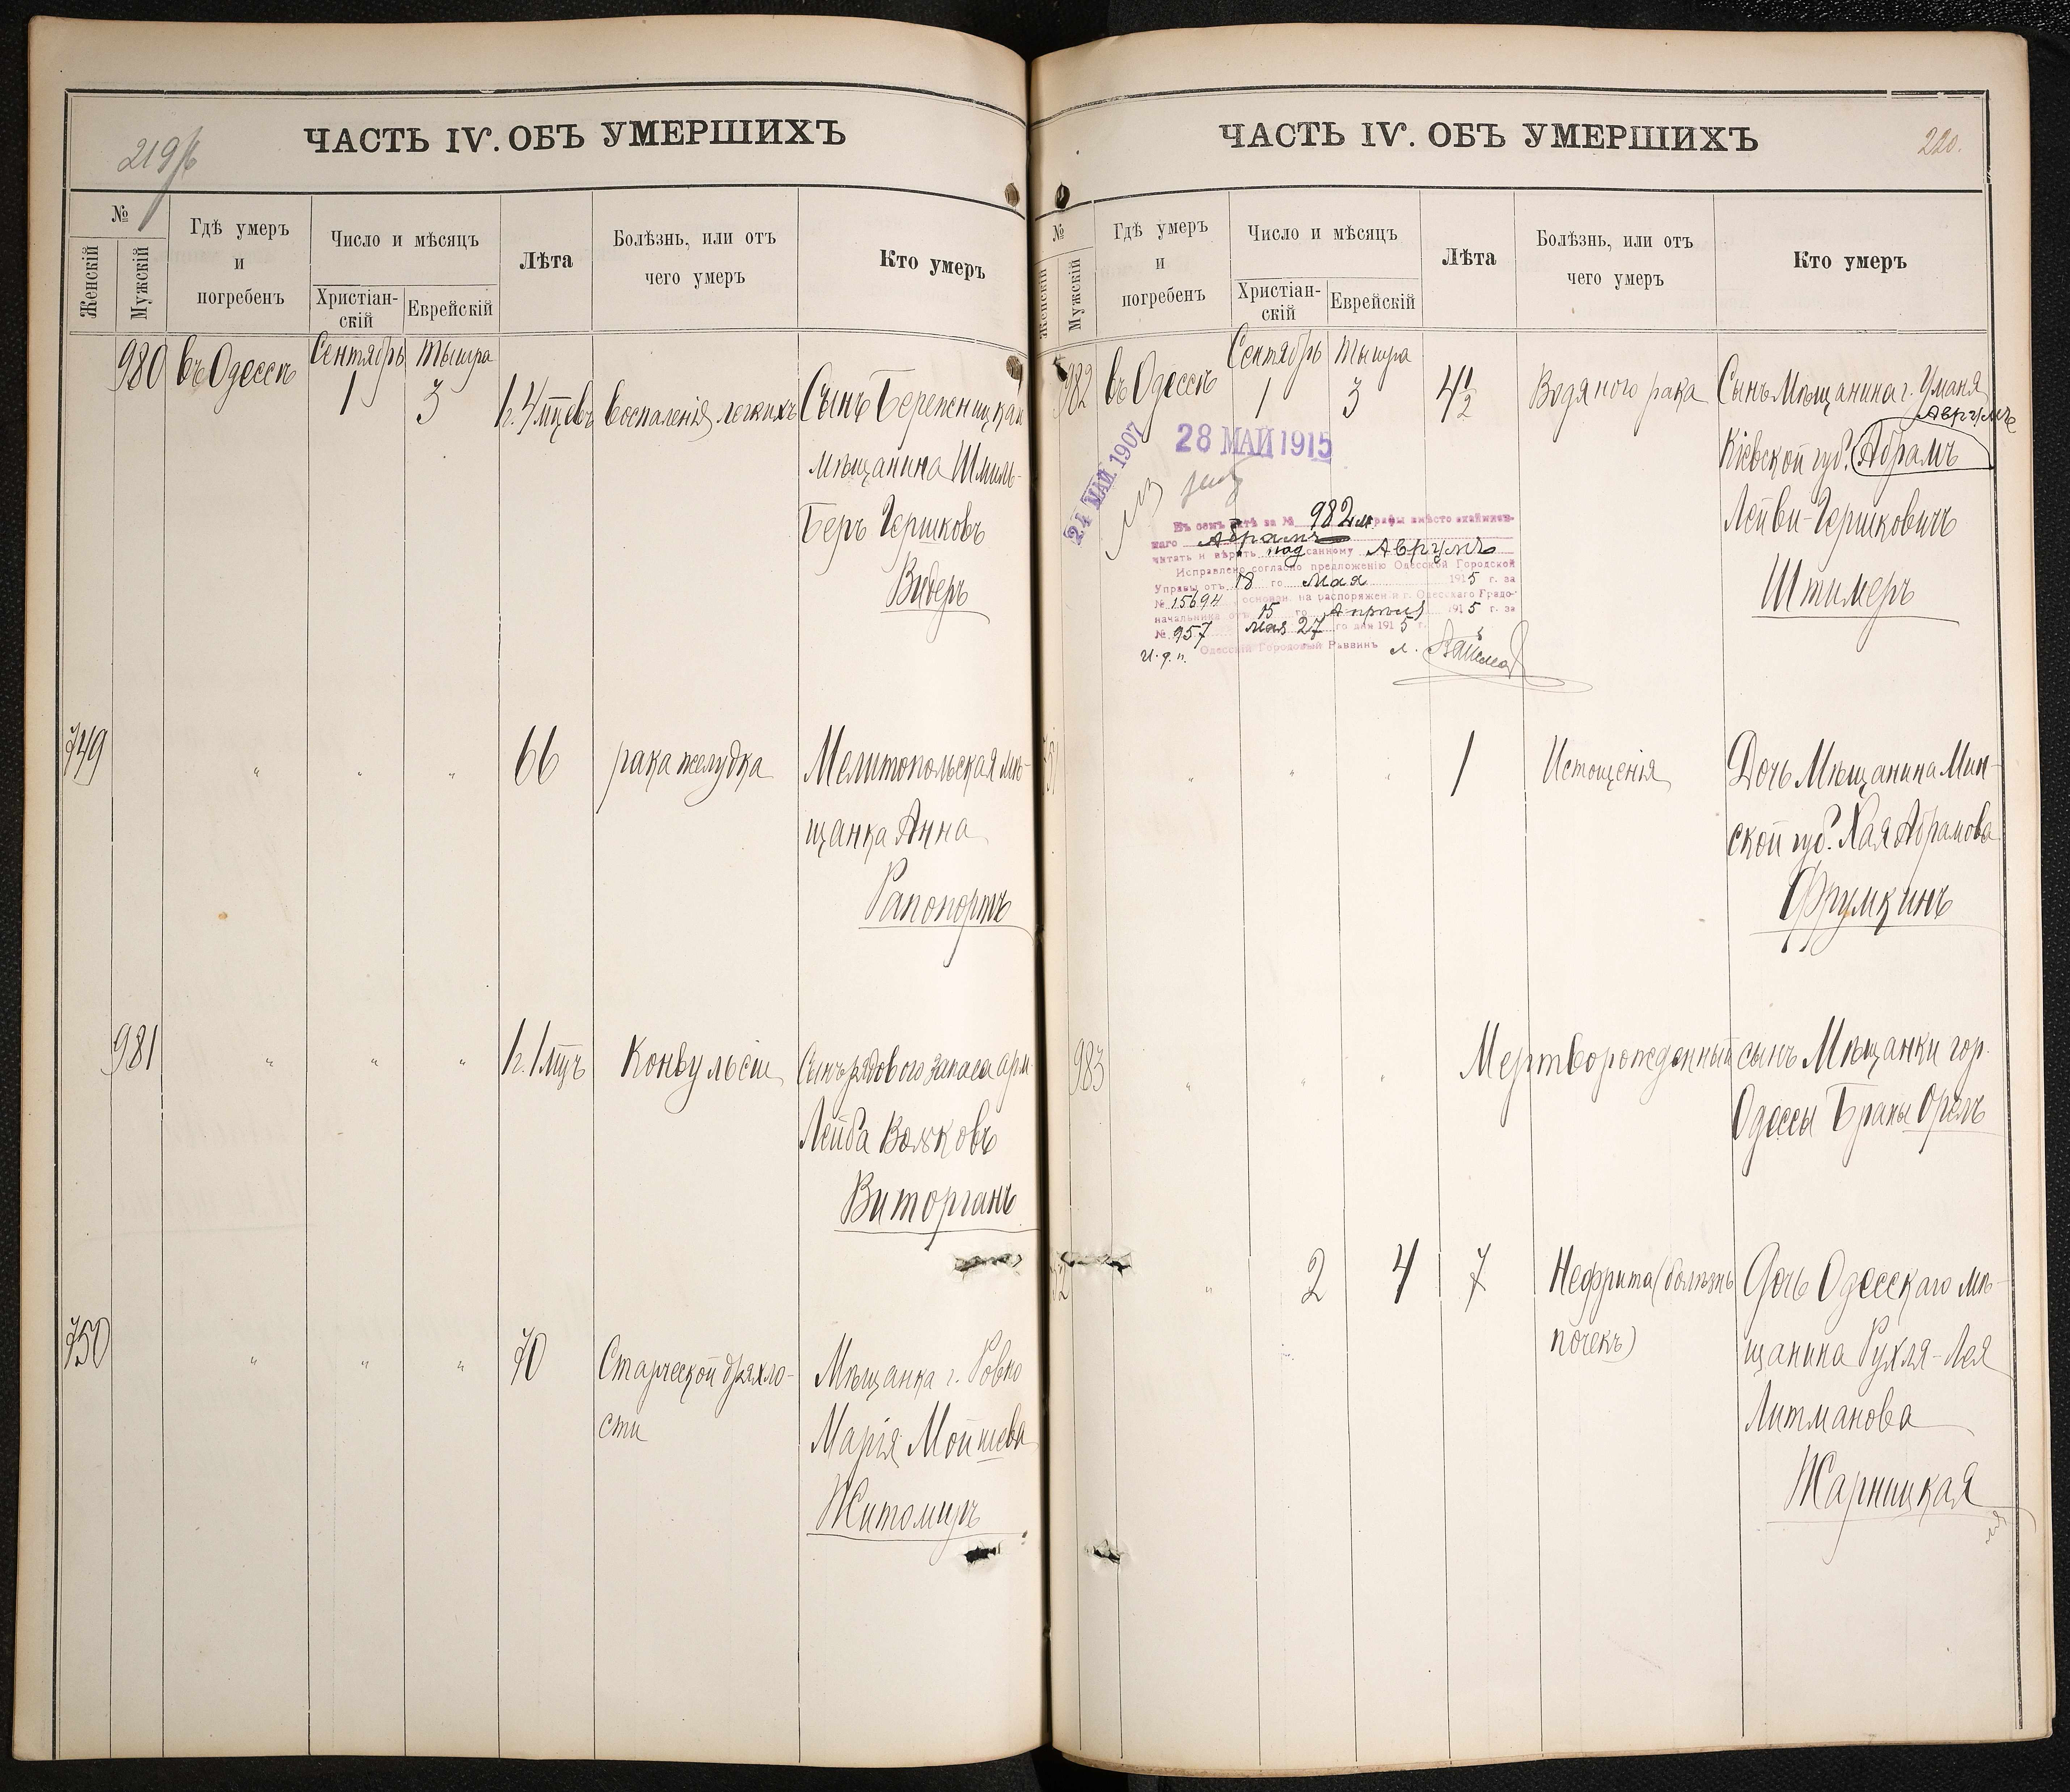 219/б
ЧАСТЬ IV. ОБЪ УМЕРШИХЪ
№
Женскій
Мужскій
Гдѣ умеръ
и
погребенъ
Число и мѣсяцъ
Христіан-
скій
Еврейскій
Лѣта
Болѣзнь, или отъ
чего умеръ
Кто умеръ
980 въ Одессѣ Сентябрь Тышра
1 3 1 г. 4 мѣцевъ воспаленія легкихъ Сынъ
мѣщанина Шмиль-
Беръ Гершковъ
Видеръ
749 „ „ „ 66 рака желудка Мелитопольская мѣ-
щанка Анна
Рапопортъ
981 „ „ „ 1 г. 1 мцъ Конвульсіи Сынъ рядового запаса арм
Лейба Волковъ
Виторганъ
750 „ „ „ 70 Старческой дряхло- Мѣщанка г. Ровно
сти Марія Мойшева
Житомиръ
ЧАСТЬ IV. ОБЪ УМЕРШИХЪ
220.
№
Женскій
Мужскій
Гдѣ умеръ
и
погребенъ
Число и мѣсяцъ
Христіан-
скій
Еврейскій
Лѣта
Болѣзнь, или отъ
чего умеръ
Кто умеръ
982 въ Одессѣ Сентябрь Тышра
1 3 4 1/2 Водяного рака Сынъ Мѣщанина г. Уманя
Аврумъ
Кіевской губ. Абрамъ
Лейви-Гершковичъ
Штимеръ
24 МАЙ 1907
28 МАЙ 1915
Въ семъ актѣ за № 982 м. графы вмѣсто
Абрамъ
читать и вѣрить надписанному Аврумъ
Исправлено согласно предложенію Одесской Городской
Управы отъ 18 го Мая 1915 г. за
№ 15694 основан. на распоряженіи г. Одесскаго Градо-
начальника отъ 15 го Апрѣля 1915 г. за
№ 957 мая 27 го дня 1915 г.
И. д. п. Одесскій Городовый Раввинъ
„ „ „ 1 Истощенія Дочь Мѣщанина Мин-
ской губ. Хая Абрамова
Фрумкинъ
983 „ „ „ Мертворожденный сынъ Мѣщанки гор.
Одессы Браны Орелъ
„ 2 4 7 Нефрита (болѣзнь Дочь Одесскаго мѣ-
почекъ) щанина Рухля-Лея
Литманова
Жарницкая